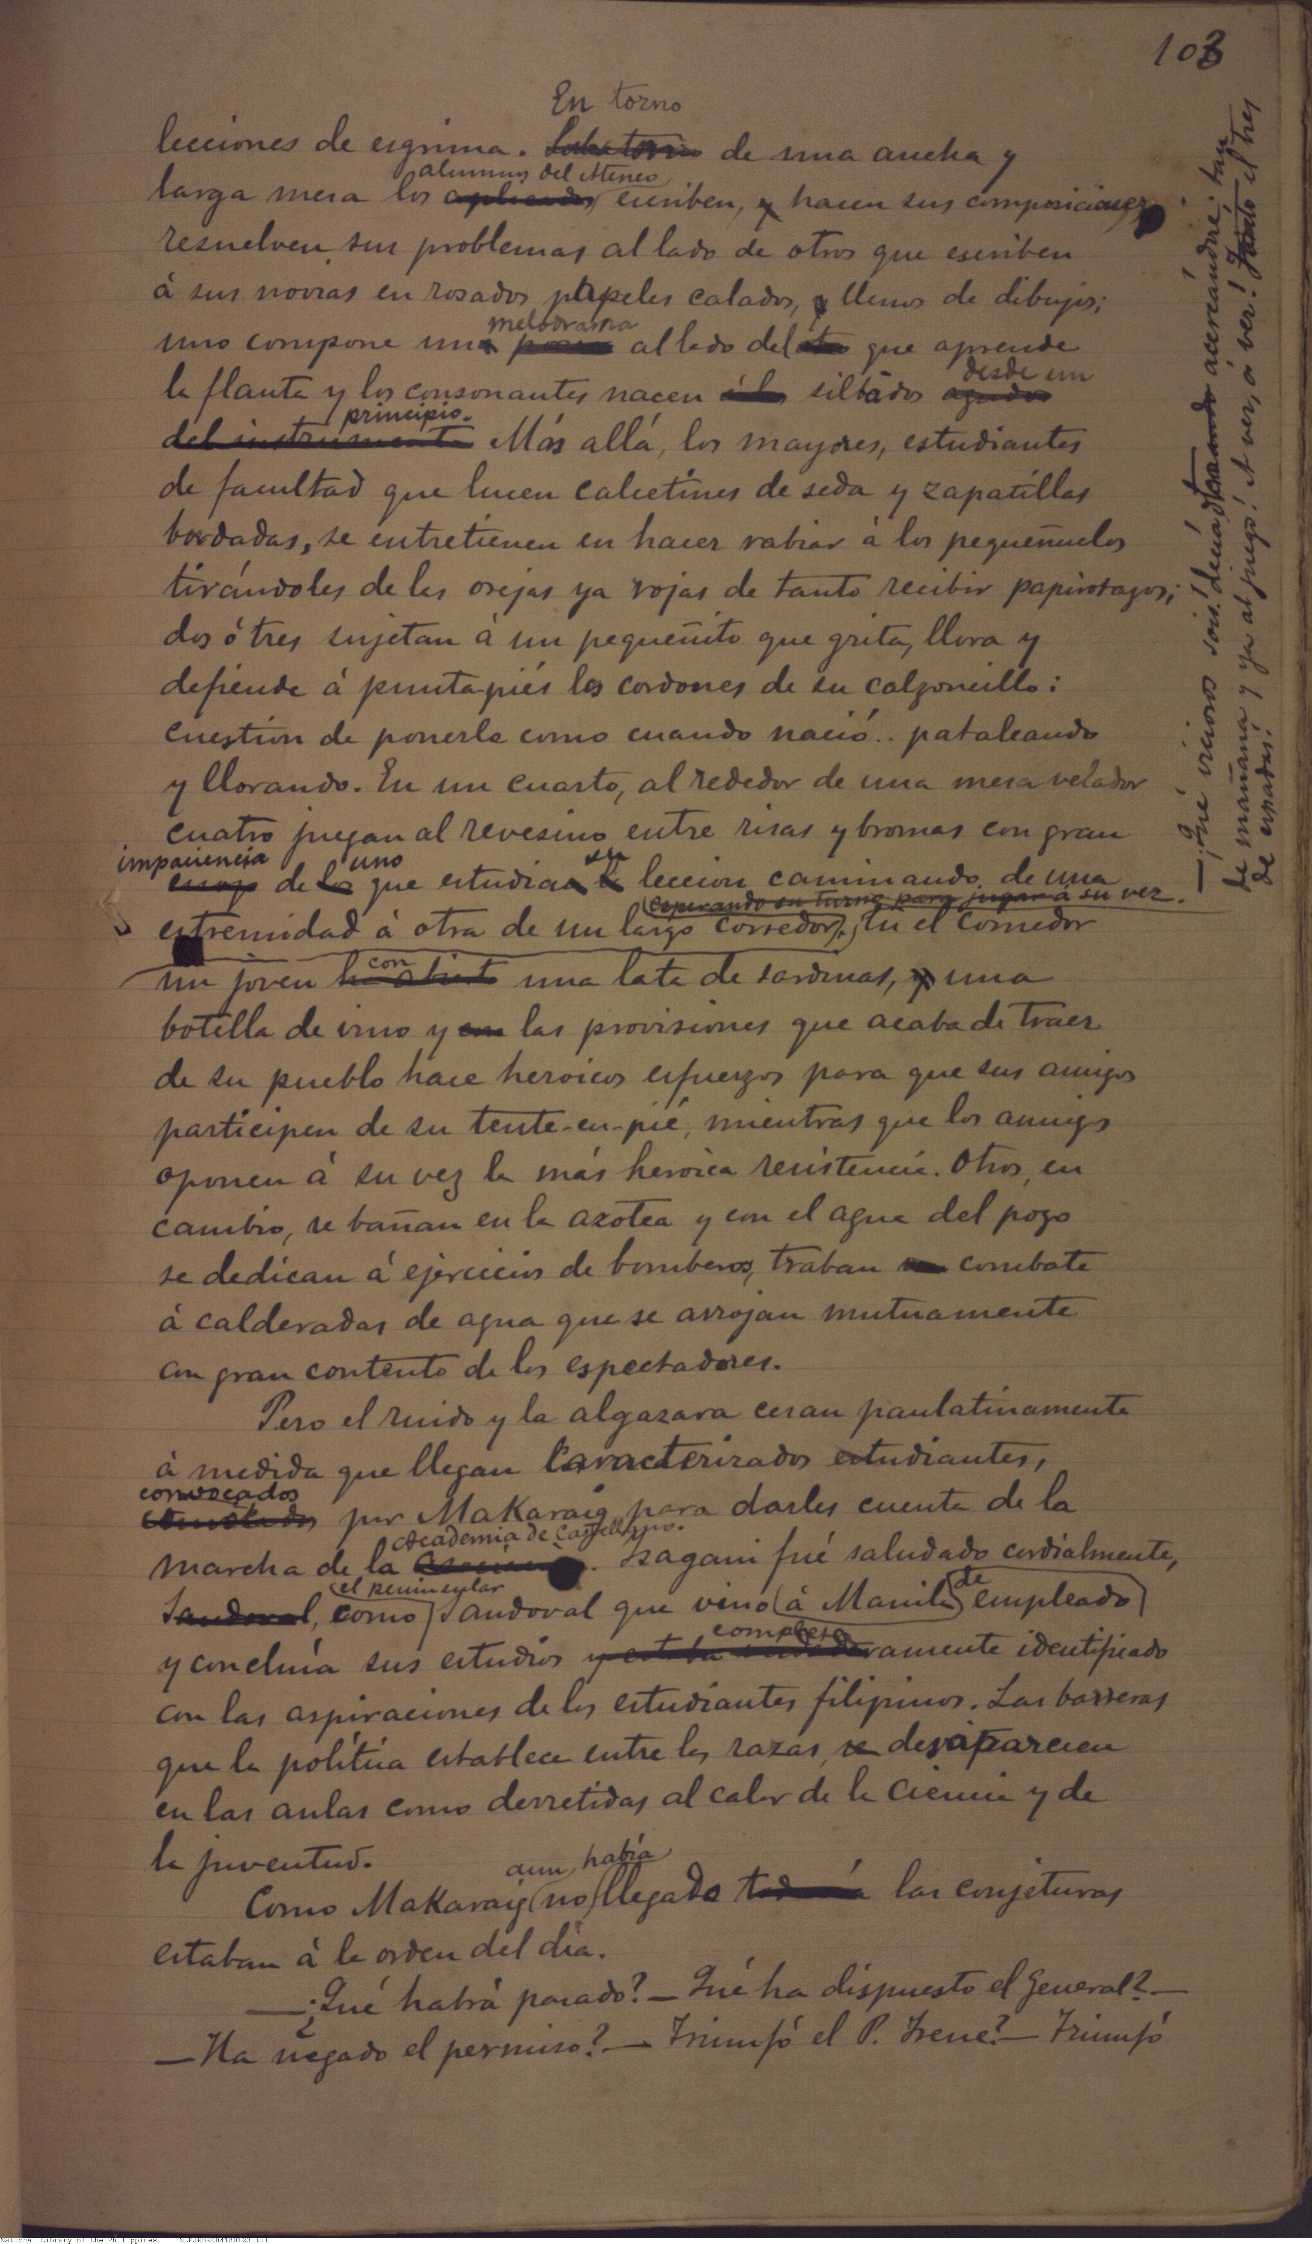 103
En torno
lecciones de esgrima. de una ancha y
alumnos del Ateneo
larga mesa los aplicados escriben, y hacen sus composiciones,
resuelven sus problemas al lado de otros que escriben
á sus novias en rosados papeles calados, y llenos de dibujos;
melodrama
uno compone un al lado del que aprende
desde un
la flauta y los consonantes nacen silbados agudos
principio.
del instrumento Más allá, los mayores, estudiantes
de facultad que lucen calcetines de seda y zapatillas
bordadas, se entretienen en hacer rabiar á los pequeñuelos
tirándoles de las orejas ya rojas de tanto recibir papirotazos;
dos ó tres sujetan á un pequeñito que grita, llora y
defiende á puntapiés los cordones de su calzoncillo:
cuestion de ponerle como cuando nació.. pataleando
y llorando. En un cuarto, al rededor de una mesa velador
cuatro juegan al revesino entre risas y bromas con gran
impaciencia uno su
de los que estudia la leccion caminando de una
esperando su turno para jugar á su vez.
estremidad á otra de un largo corredor. En el comedor
con
un joven ha abierto una lata de sardinas, y una
botella de vino y con las provisiones que acaba de traer
de su pueblo hace heroicos esfuerzos para que sus amigos
participen de su tente-en-pié, mientras que los amigos
oponen á su vez la más heroica resistencia. Otros, en
cambio, se bañan en la azotea y con el agua del pozo
se dedican á ejercicios de bomberos, traban combate
á calderadas de agua que se arrojan mutuamente
con gran contento de los espectadores.
Pero el ruido y la algazara cesan paulatinamente
á medida que llegan caracterizados estudiantes,
convocados
por Makaraig para darles cuenta de la
Academia de Castellano.
marcha de la . Isagani fué saludado cordialmente,
el peninsular de
Sandoval, como Sandoval que vino á Manila empleado
completa
y concluía sus estudios y estaba verdaderamente identificado
con las aspiraciones de los estudiantes filipinos. Las barreras
que la política establece entre las razas, se desaparecen
en las aulas como derretidas al calor de la ciencia y de
la juventud.
aun había
Como Makaraig no llegado todavía las conjeturas
estaban á la orden del dia.
—¿Qué habrá pasado? — Qué ha dispuesto el General? —
—Ha negado el permiso? — Triunfó el P. Irene? — Triunfó
—¡Qué viciosos sois! decía acercándose; tan
de mañana y ya al juego! A ver, á ver! Tonto el tres
de espadas!